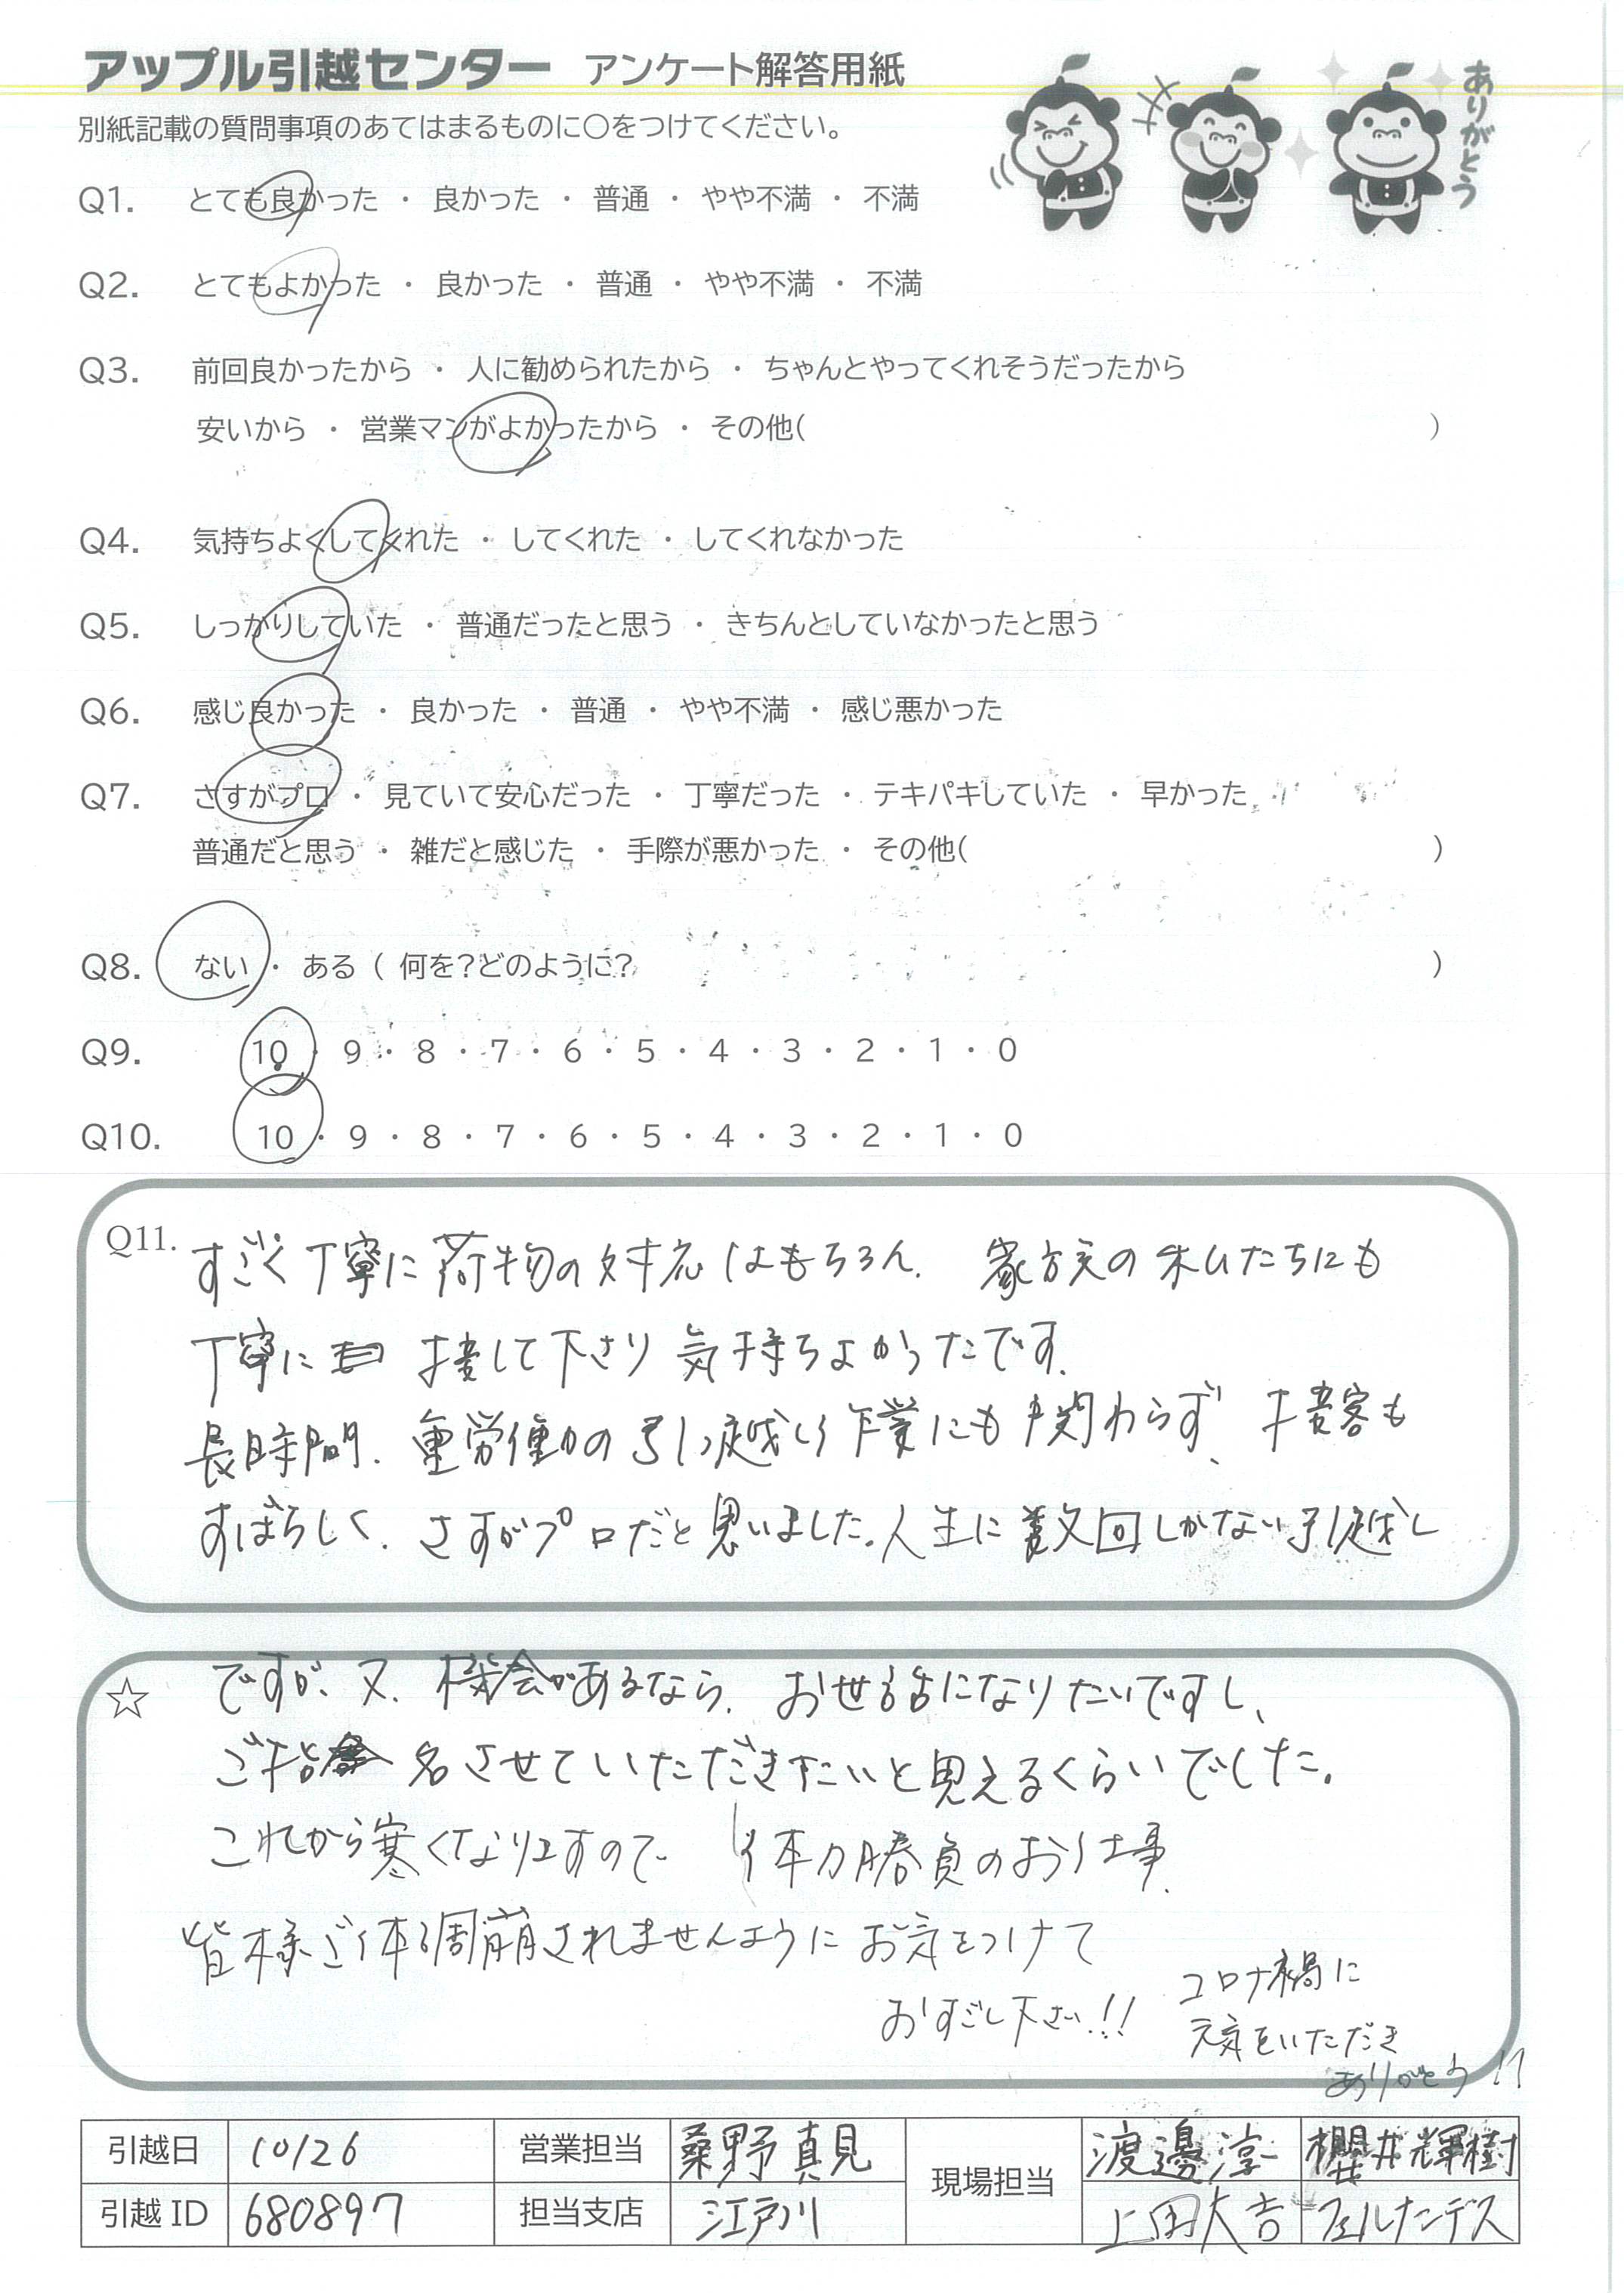 アップル引越センター アンケート解答用紙
ありがとう
別紙記載の質問事項のあてはまるものに○をつけてください。
Q1. とても良かった ・ 良かった ・ 普通 ・ やや不満 ・ 不満
Q2. とてもよかった ・ 良かった ・ 普通 ・ やや不満 ・ 不満
Q3. 前回良かったから ・ 人に勧められたから ・ ちゃんとやってくれそうだったから
安いから ・ 営業マンがよかったから ・ その他( )
Q4. 気持ちよくしてくれた ・ してくれた ・ してくれなかった
Q5. しっかりしていた ・ 普通だったと思う ・ きちんとしていなかったと思う
Q6. 感じ良かった ・ 良かった ・ 普通 ・ やや不満 ・ 感じ悪かった
Q7. さすがプロ ・ 見ていて安心だった ・ 丁寧だった ・ テキパキしていた ・ 早かった
普通だと思う ・ 雑だと感じた ・ 手際が悪かった ・ その他( )
Q8. ない ・ ある ( 何を?どのように? )
Q9. 10 ・ 9 ・ 8 ・ 7 ・ 6 ・ 5 ・ 4 ・ 3 ・ 2 ・ 1 ・ 0
Q10. 10 ・ 9 ・ 8 ・ 7 ・ 6 ・ 5 ・ 4 ・ 3 ・ 2 ・ 1 ・ 0
Q11. すごく丁寧に荷物の対応はもちろん、家族の私たちにも
丁寧に 接して下さり気持ちよかったです。
長時間、重労働の引っ越し作業にも関わらず、接客も
すばらしく、さすがプロだと思いました。人生に数回しかない引越し
☆ ですが、又、機会があるなら、お世話になりたいですし、
ご指名させていただきたいと思えるくらいでした。
これから寒くなりますので 体力勝負のお仕事、
皆様ご体調崩されませんようにお気をつけて
おすごし下さい!!
コロナ禍に
元気をいただき
ありがとう!!
引越日 10/26 営業担当 桑野真見 現場担当 渡邊淳一 櫻井輝樹
引越ID 680897 担当支店 江戸川 上田大吉 フェルナンデス